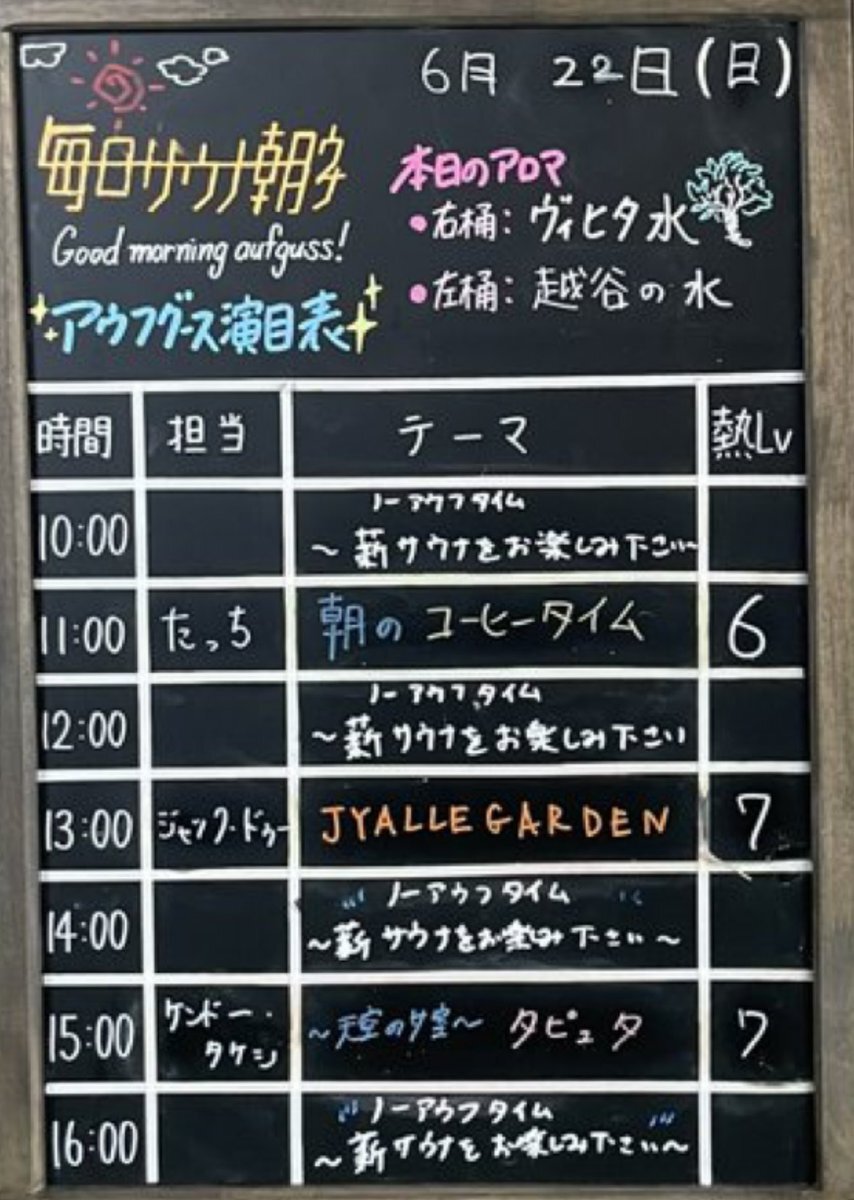 6月 22日(日)
毎日サウナ朝
Good morning aufguss!
アウフグース演目表
本日のアロマ
●右桶: ヴィヒタ水
●左桶: 越谷の水
時間 担当 テーマ 熱Lv
10:00 ノーアウフタイム
~薪サウナをお楽しみ下さい~
11:00 たっち 朝のコーヒータイム 6
12:00 ノーアウフタイム
~薪サウナをお楽しみ下さい
13:00 ジャック・ドゥー JYALLE GARDEN 7
14:00 ノーアウフタイム
~薪サウナをお楽しみ下さい~
15:00 ケンドー・タケシ ~天空の~ タピュタ 7
16:00 ノーアウフタイム
~薪サウナをお楽しみ下さい~